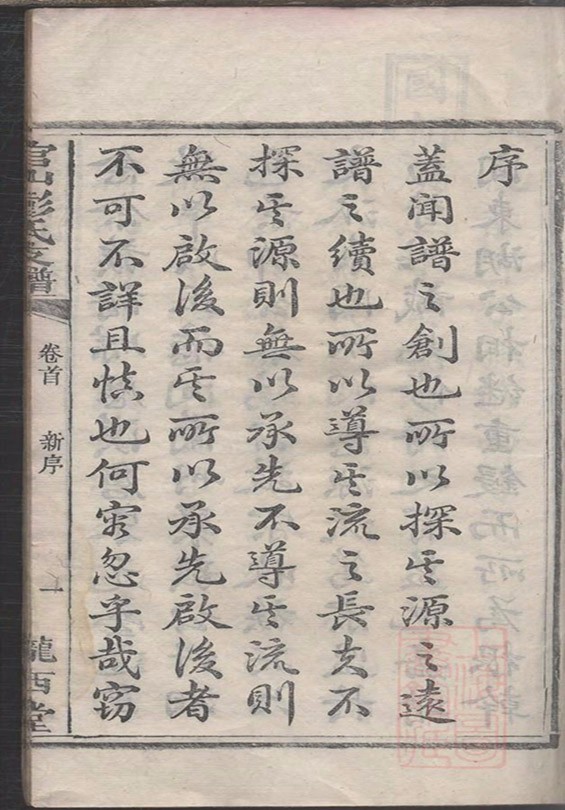 序
蓋聞譜之創也所以探其源之遠
譜之續也所以導其流之長夫不
探其源則無以承先不導其流則
無以啟後而其所以承先啟後者
不可不詳且慎也何容忽乎哉竊
官山彭氏支譜 卷首 新序 一 隴西堂